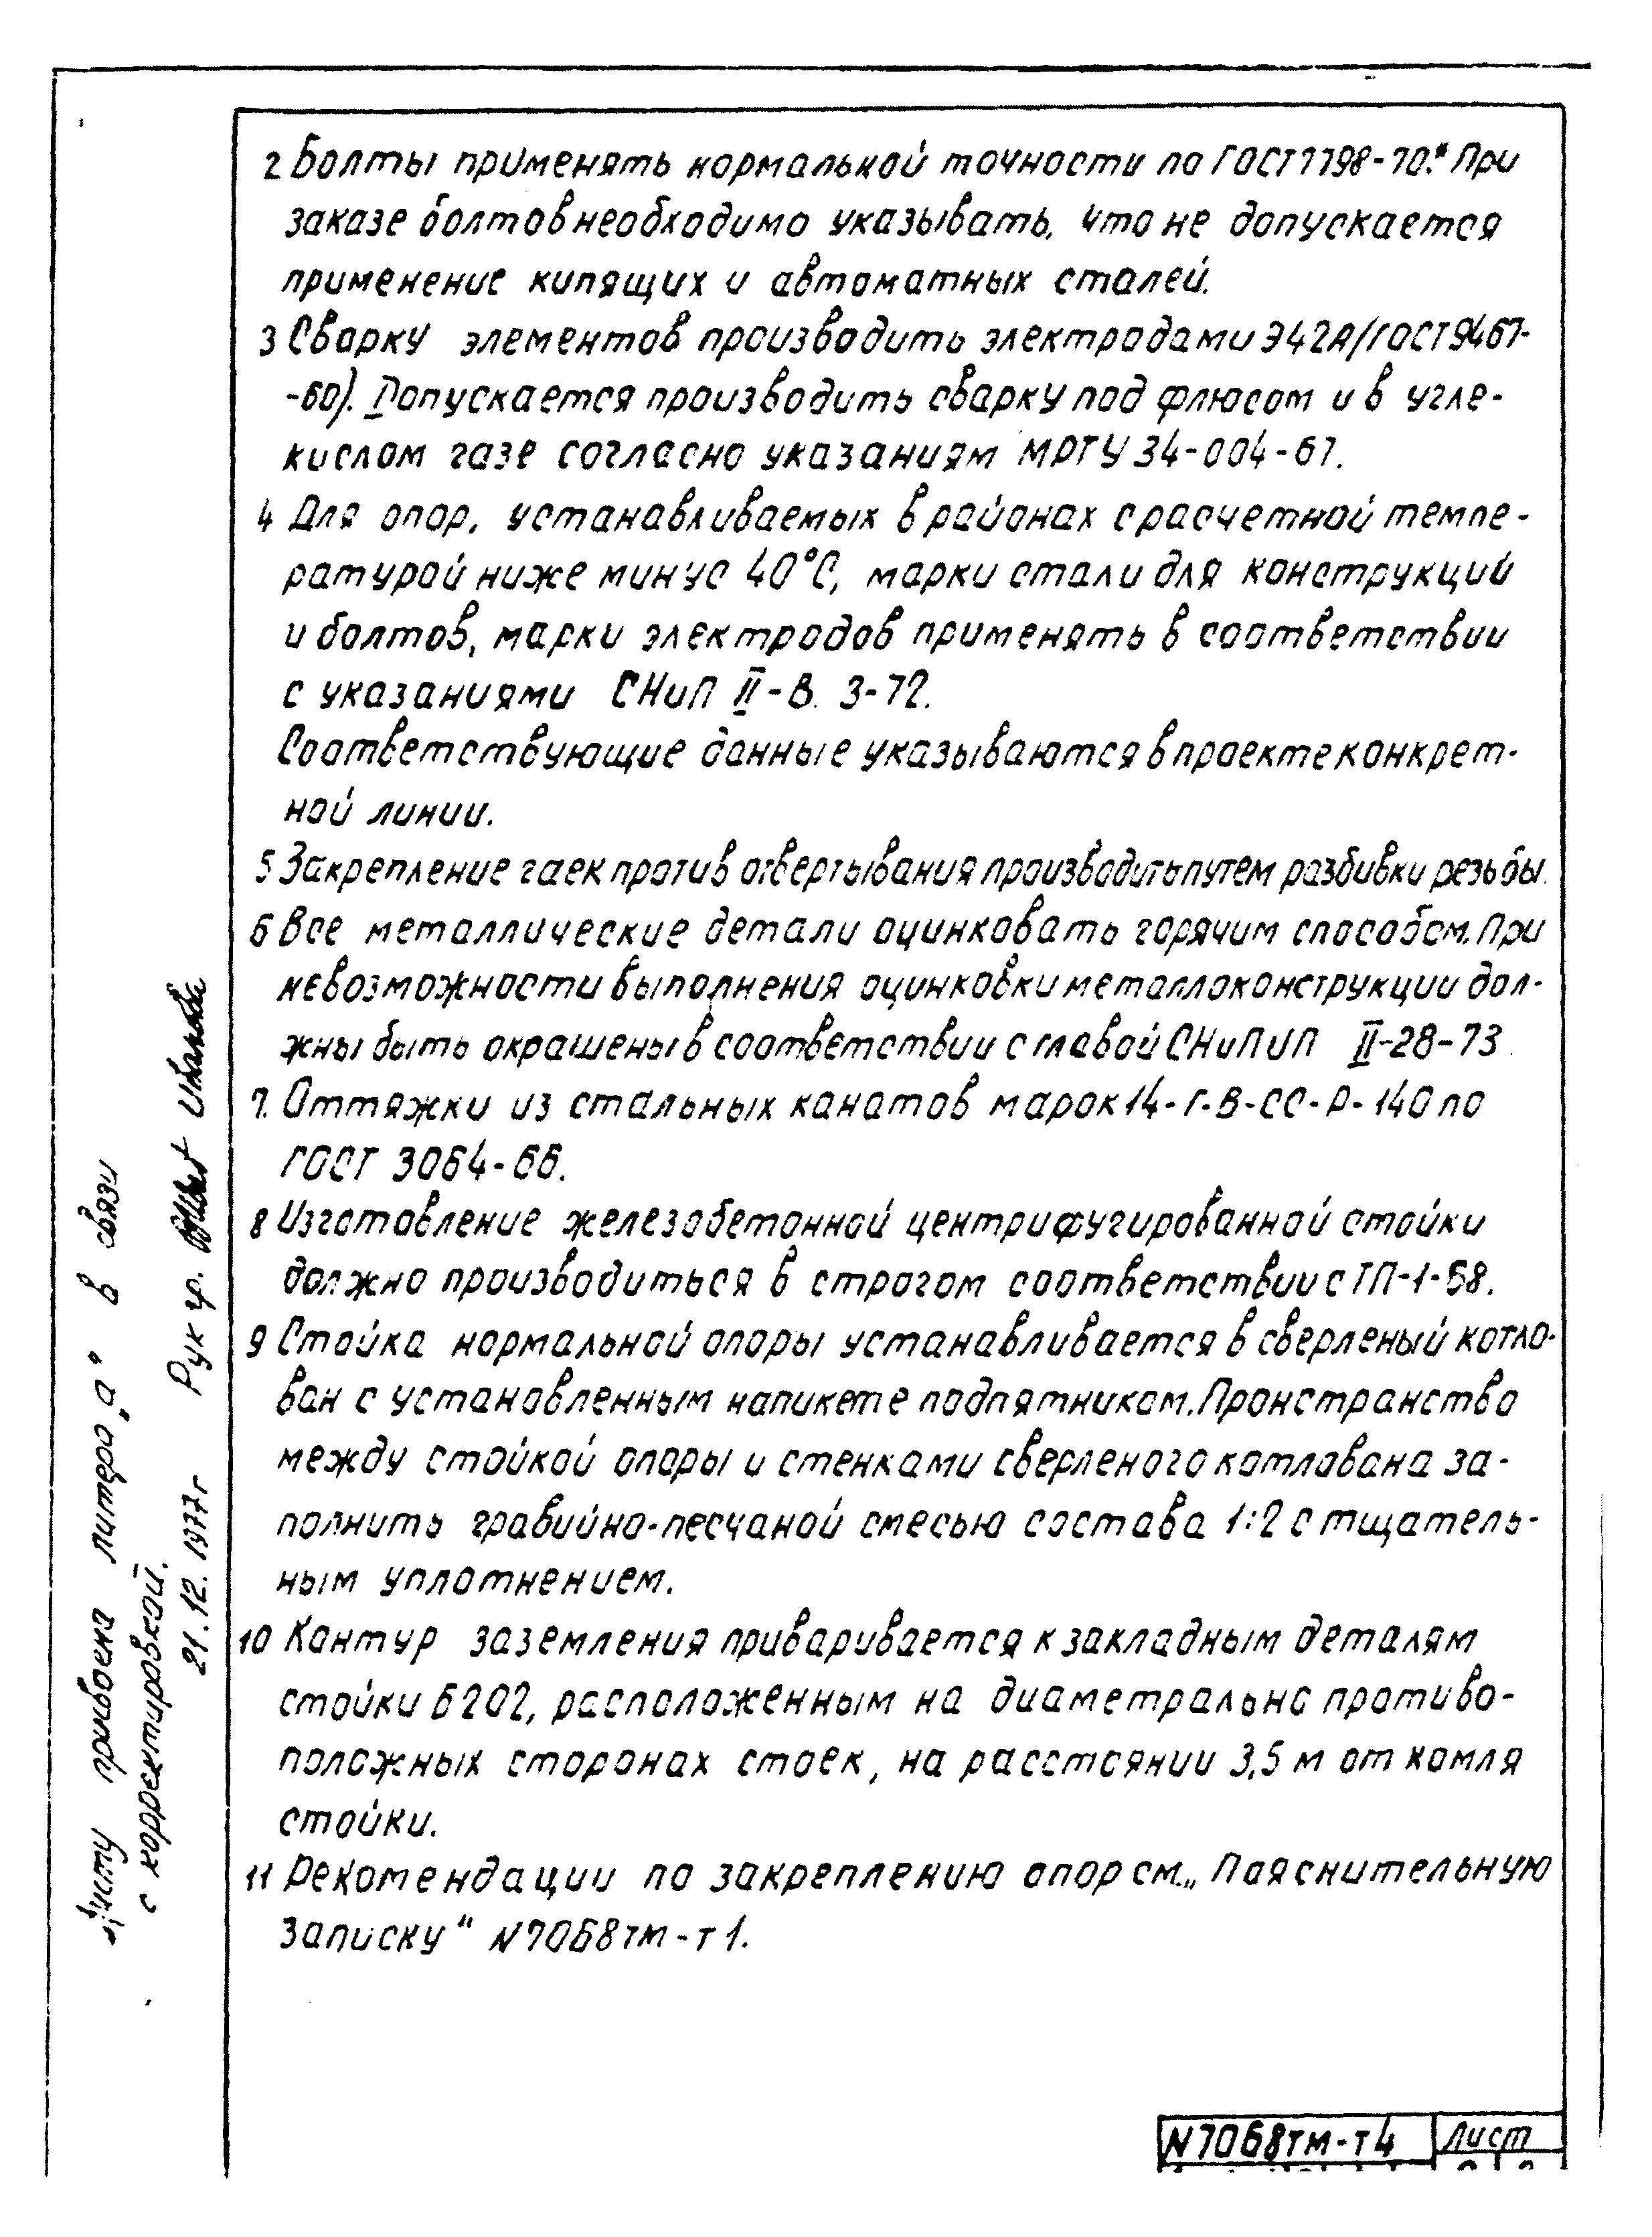 2 Болты применять нормальной точности по ГОСТ 7798-70.* При
заказе болтов необходимо указывать, что не допускается
применение кипящих и автоматных сталей.
3 Сварку элементов производить электродами Э42А/ГОСТ 9467-
-60). Допускается производить сварку под флюсом и в угле-
кислом газе согласно указаниям МРТУ 34-004-67.
4 Для опор, устанавливаемых в районах с расчетной темпе-
ратурой ниже минус 40°С, марки стали для конструкций
и болтов, марки электродов применять в соответствии
с указаниями СНиП II-В. 3-72.
Соответствующие данные указываются в проекте конкрет-
ной линии.
5 Закрепление гаек против отвертывания производить путем разбивки резьбы.
6 Все металлические детали оцинковать горячим способом. При
невозможности выполнения оцинковки металлоконструкции дол-
жны быть окрашены в соответствии с главой СНиПиП II-28-73
7. Оттяжки из стальных канатов марок 14-Г-В-СС-Р-140 по
ГОСТ 3064-66.
8 Изготовление железобетонной центрифугированной стойки
должно производиться в строгом соответствии с ТП-1-68.
9 Стойка нормальной опоры устанавливается в сверленый котло-
ван с установленным на пикете подпятником. Пронстранство
между стойкой опоры и стенками сверленого котлована за-
полнить гравийно-песчаной смесью состава 1:2 с тщатель-
ным уплотнением.
10 Контур заземления приваривается к закладным деталям
стойки Б202, расположенным на диаметрально противо-
положных сторонах стоек, на расстоянии 3,5 м от комля
стойки.
11 Рекомендации по закреплению опор см. „Пояснительную
записку" N7068тм-т1.
Листу присвоена литера „а" в связи
с корректировкой.
21.12.1977г Рук гр. Иванова
N7068тм-т4 Лист